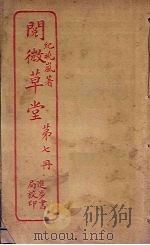 紀曉嵐著
閱微草堂
第七冊
進步書
局校印